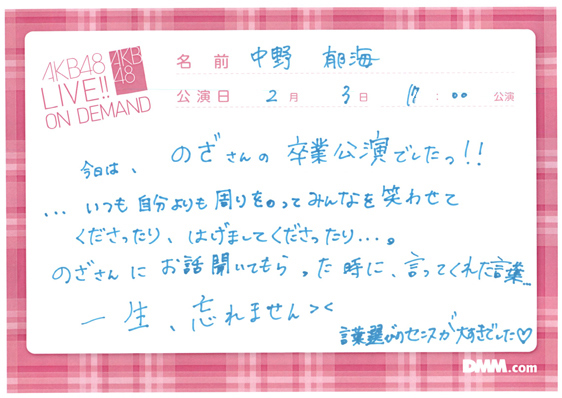 AKB48
LIVE!!
ON DEMAND
AKB
48
名前 中野 郁海
公演日 2月 3日 17:00 公演
今日は、のざさんの卒業公演でしたっ!!
... いつも自分よりも周りを。ってみんなを笑わせて
くださったり、はげましてくださったり...。
のざさんにお話聞いてもらった時に、言ってくれた言葉...
一生、忘れません><
言葉選びのセンスが大すきでした♡
DMM.com